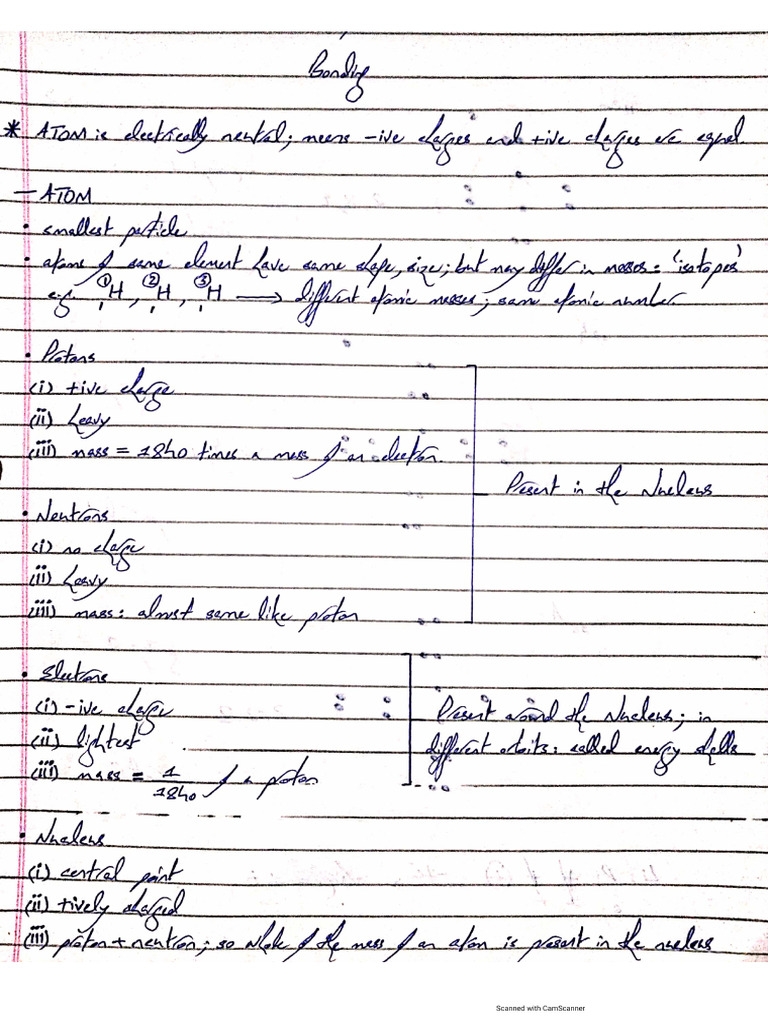 Bonding
* ATOM is electrically neutral; means -ive charges and +ive charges are equal.
- ATOM
• smallest particle
• atoms of same element have same shape, size; but may differ in masses: 'isotopes'
e.g. ①H, ②H, ③H → different atomic masses; same atomic number.
1 1 1
• Protons
(i) +ive charge
(ii) heavy
(iii) mass = 1840 times a mass of an electron.
Present in the Nucleus
• Neutrons
(i) no charge
(ii) heavy
(iii) mass: almost same like proton
• Electrons
(i) -ive charge
(ii) lightest
(iii) mass = 1/1840 of a proton
Present around the Nucleus; in
different orbits: called energy shells
• Nucleus
(i) central point
(ii) +ively charged
(iii) proton + neutron; so whole of the mass of an atom is present in the nucleus
Scanned with CamScanner